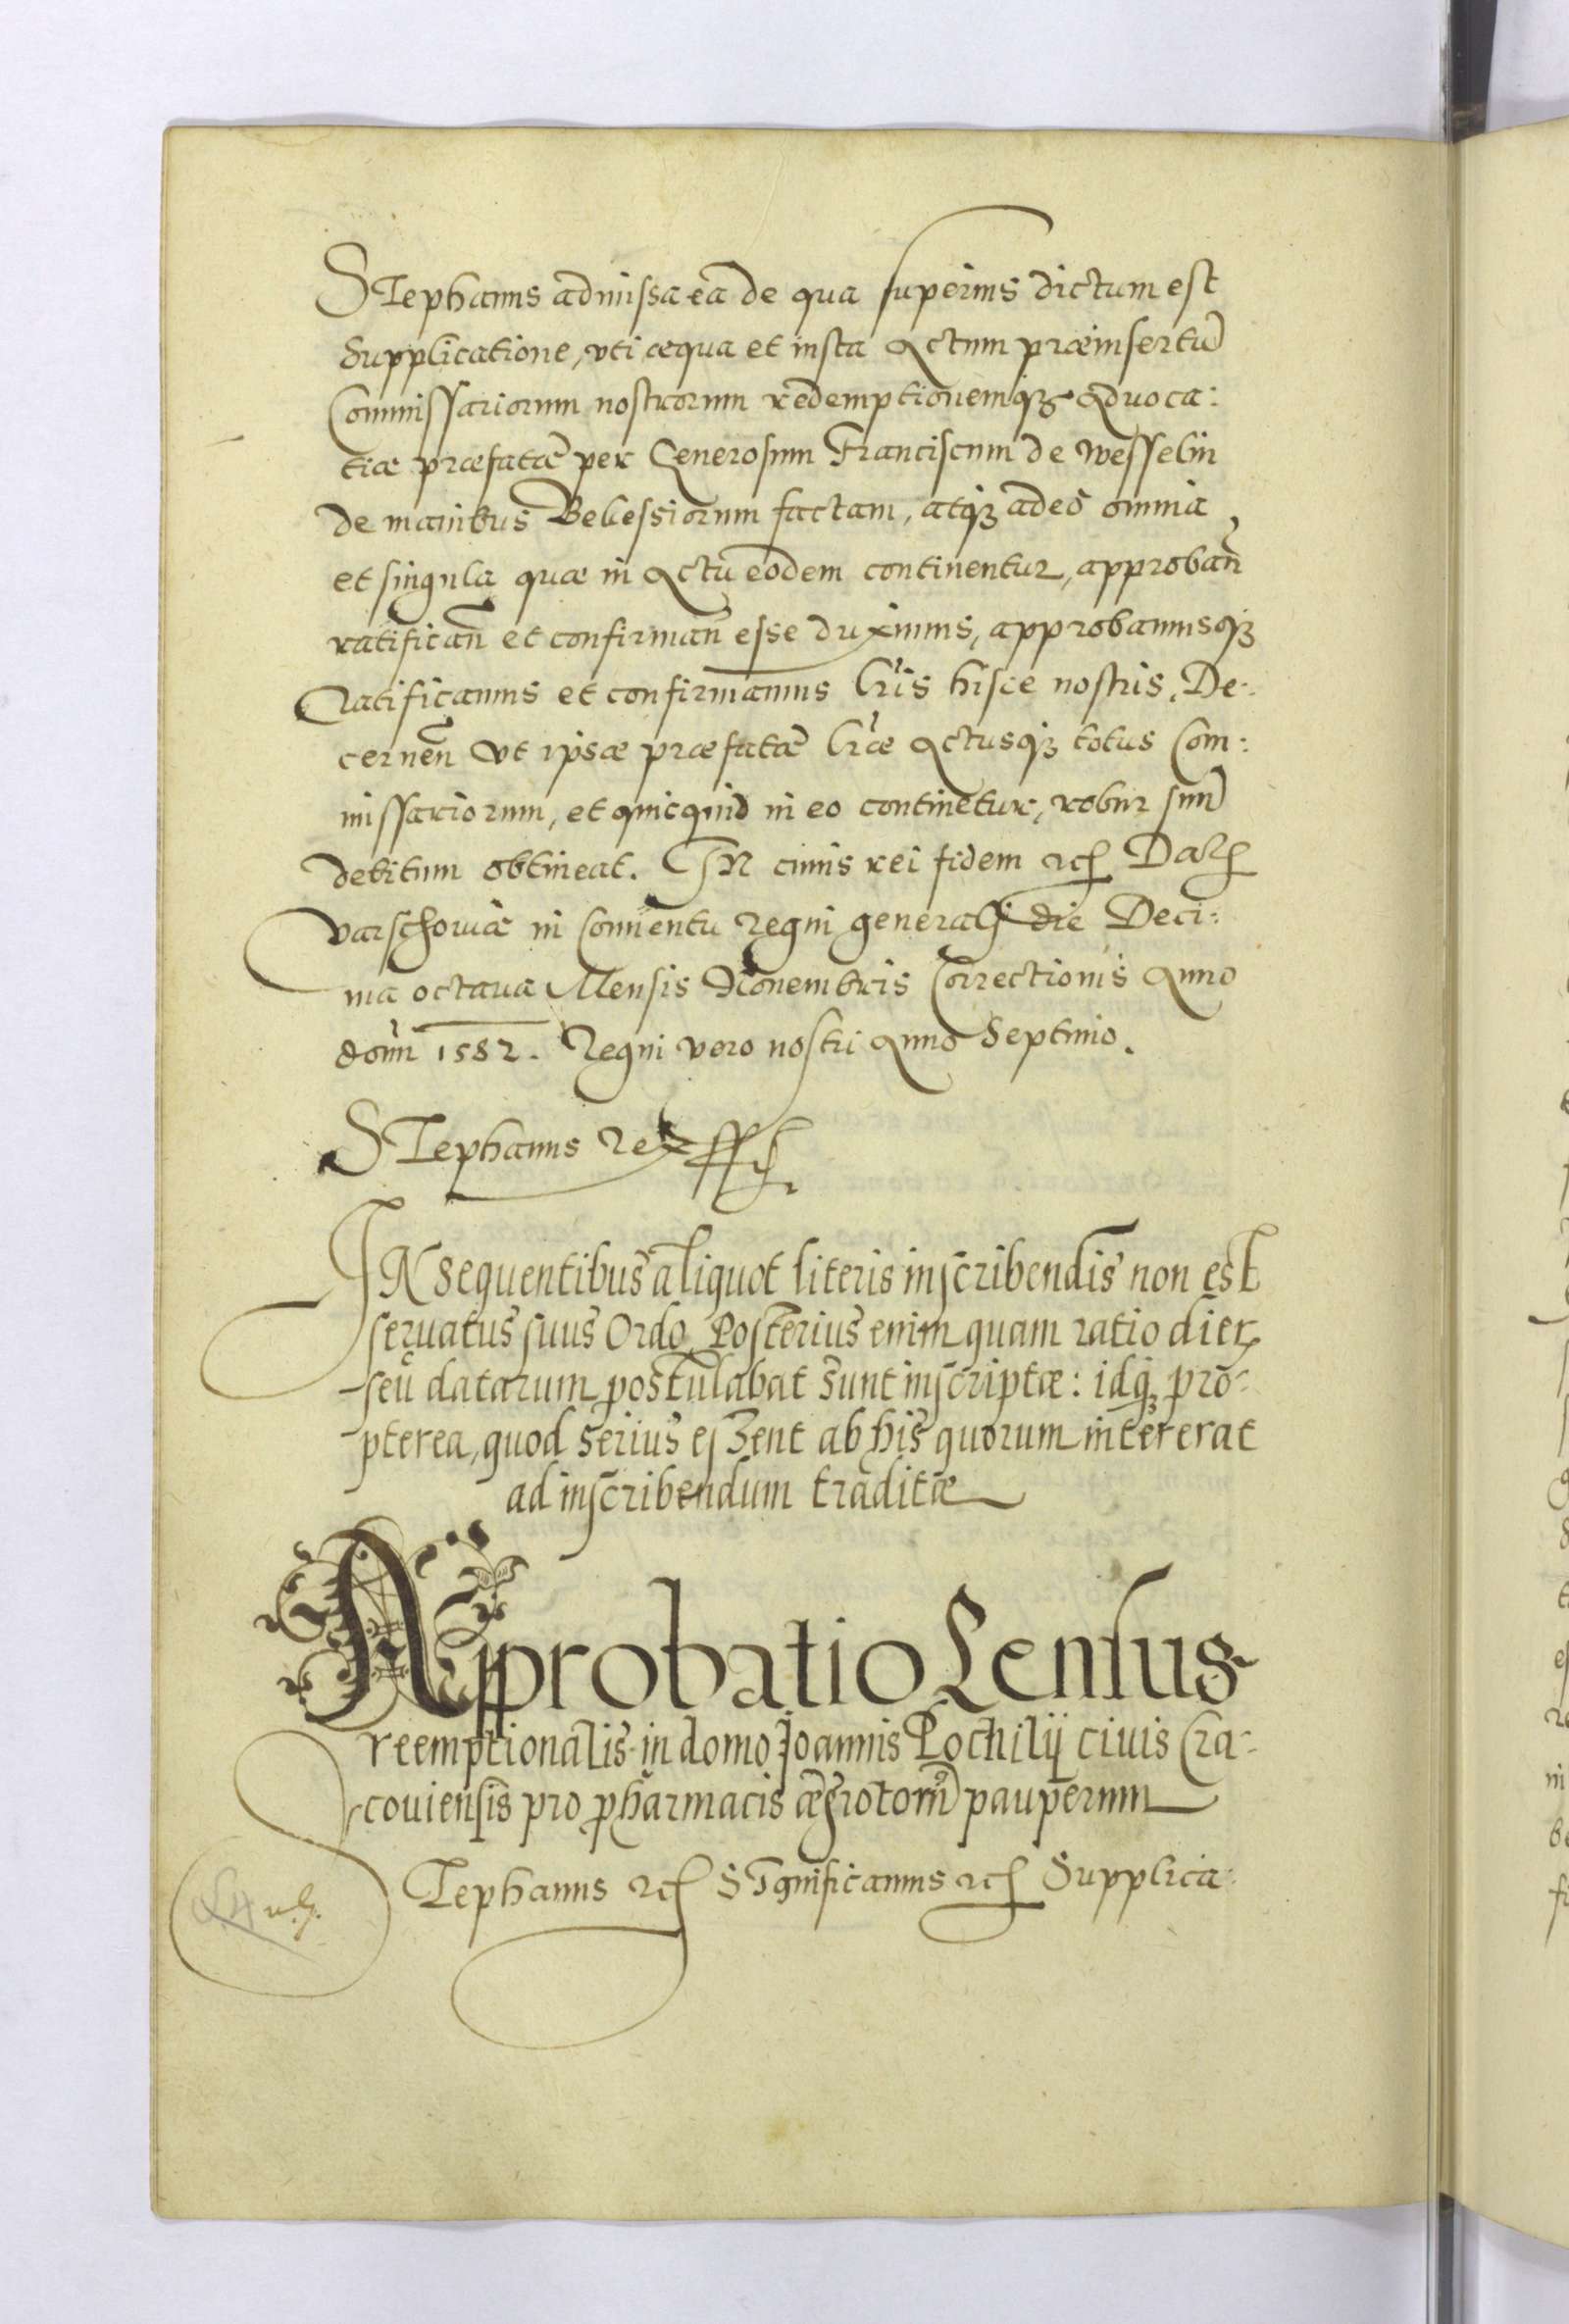 STephanus admissa ea de qua superius dictum est
Supplicatione, vti æqua et iusta Actum præinsertu
Commissariorum nostrorum redemptionemq₃ Aduoca:
tiæ præfatæ per Generosum Franciscum de Wesselin
de manibus Bekessiorum factam, atq₃ adeo omnia
et singula quæ in Actu eodem continentur, approban̄
ratifican̄ et confirman̄ esse duximus, approbamusq₃
Ratificamus et confirmamus Lr̄is hisce nostris, De:
cernen̄ Vt ipsæ præfatæ Lr̄æ Actusq₃ totus Com:
missariorum, et quicquid in eo continetur, robur suu
debitum obtineat. IN cuius rei fidem etc Datz
Varschouiæ in Conuentu Regni generali die Deci:
ma octaua Mensis Nouembris Correctionis Anno
doḿn 1582. Regni vero nostri Anno Septimo.
STephanus Rex sst
IN sequentibus aliquot literis inscribendis non est
seruatus suus Ordo Posterius enim quam ratio dier
seu datarum postulabat sunt inscriptæ: idq₃ pro:
pterea, quod serius essent ab his quorum intererat
ad inscribendum traditæ
Approbatio Census
reemptionalis in domo Joannis Pochilij ciuis Cra:
couiensis pro pharmacis ægrotorū pauperum
STephanus etc SIgnificamus etc Supplica: